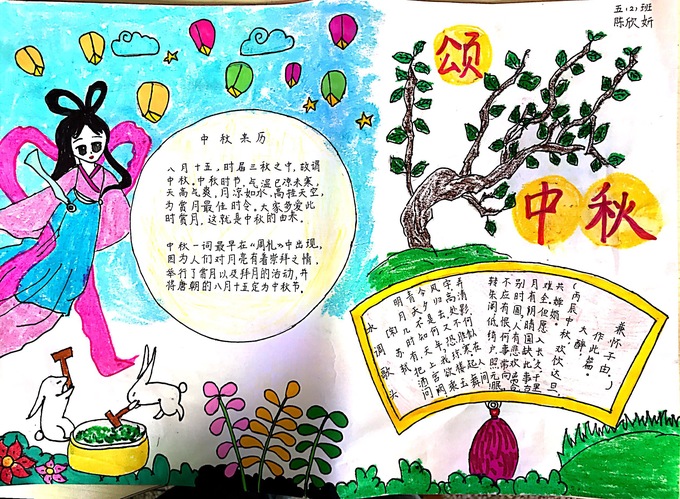 五(2)班
陈欣妍
颂
中秋
中秋来历
八月十五，时届三秋之中，故谓
中秋。中秋时节，气温已凉未寒，
天高气爽，月凉如水，高挂天空，
为赏月最佳时令。大家多爱此
时赏月，这就是中秋的由来。
中秋一词最早在《周礼》中出现，
因为人们对月亮有着崇拜之情，
举行了赏月以及拜月的活动，并
将唐朝的八月十五定为中秋节。
水调歌头
(宋)苏轼
明月几时有，把酒问
青天，不知天上宫阙，
今夕是何年。我欲乘
风归去，又恐琼楼玉
宇，高处不胜寒，起舞
弄清影，何似在人间。
转朱阁，低绮户，照无眠，
不应有恨，何事长向
别时圆，人有悲欢离合，
月有阴晴圆缺，此事古
难全，但愿人长久，千里
共婵娟。
(丙辰中秋，欢饮达旦，
大醉，
作此篇，
兼怀子由。)